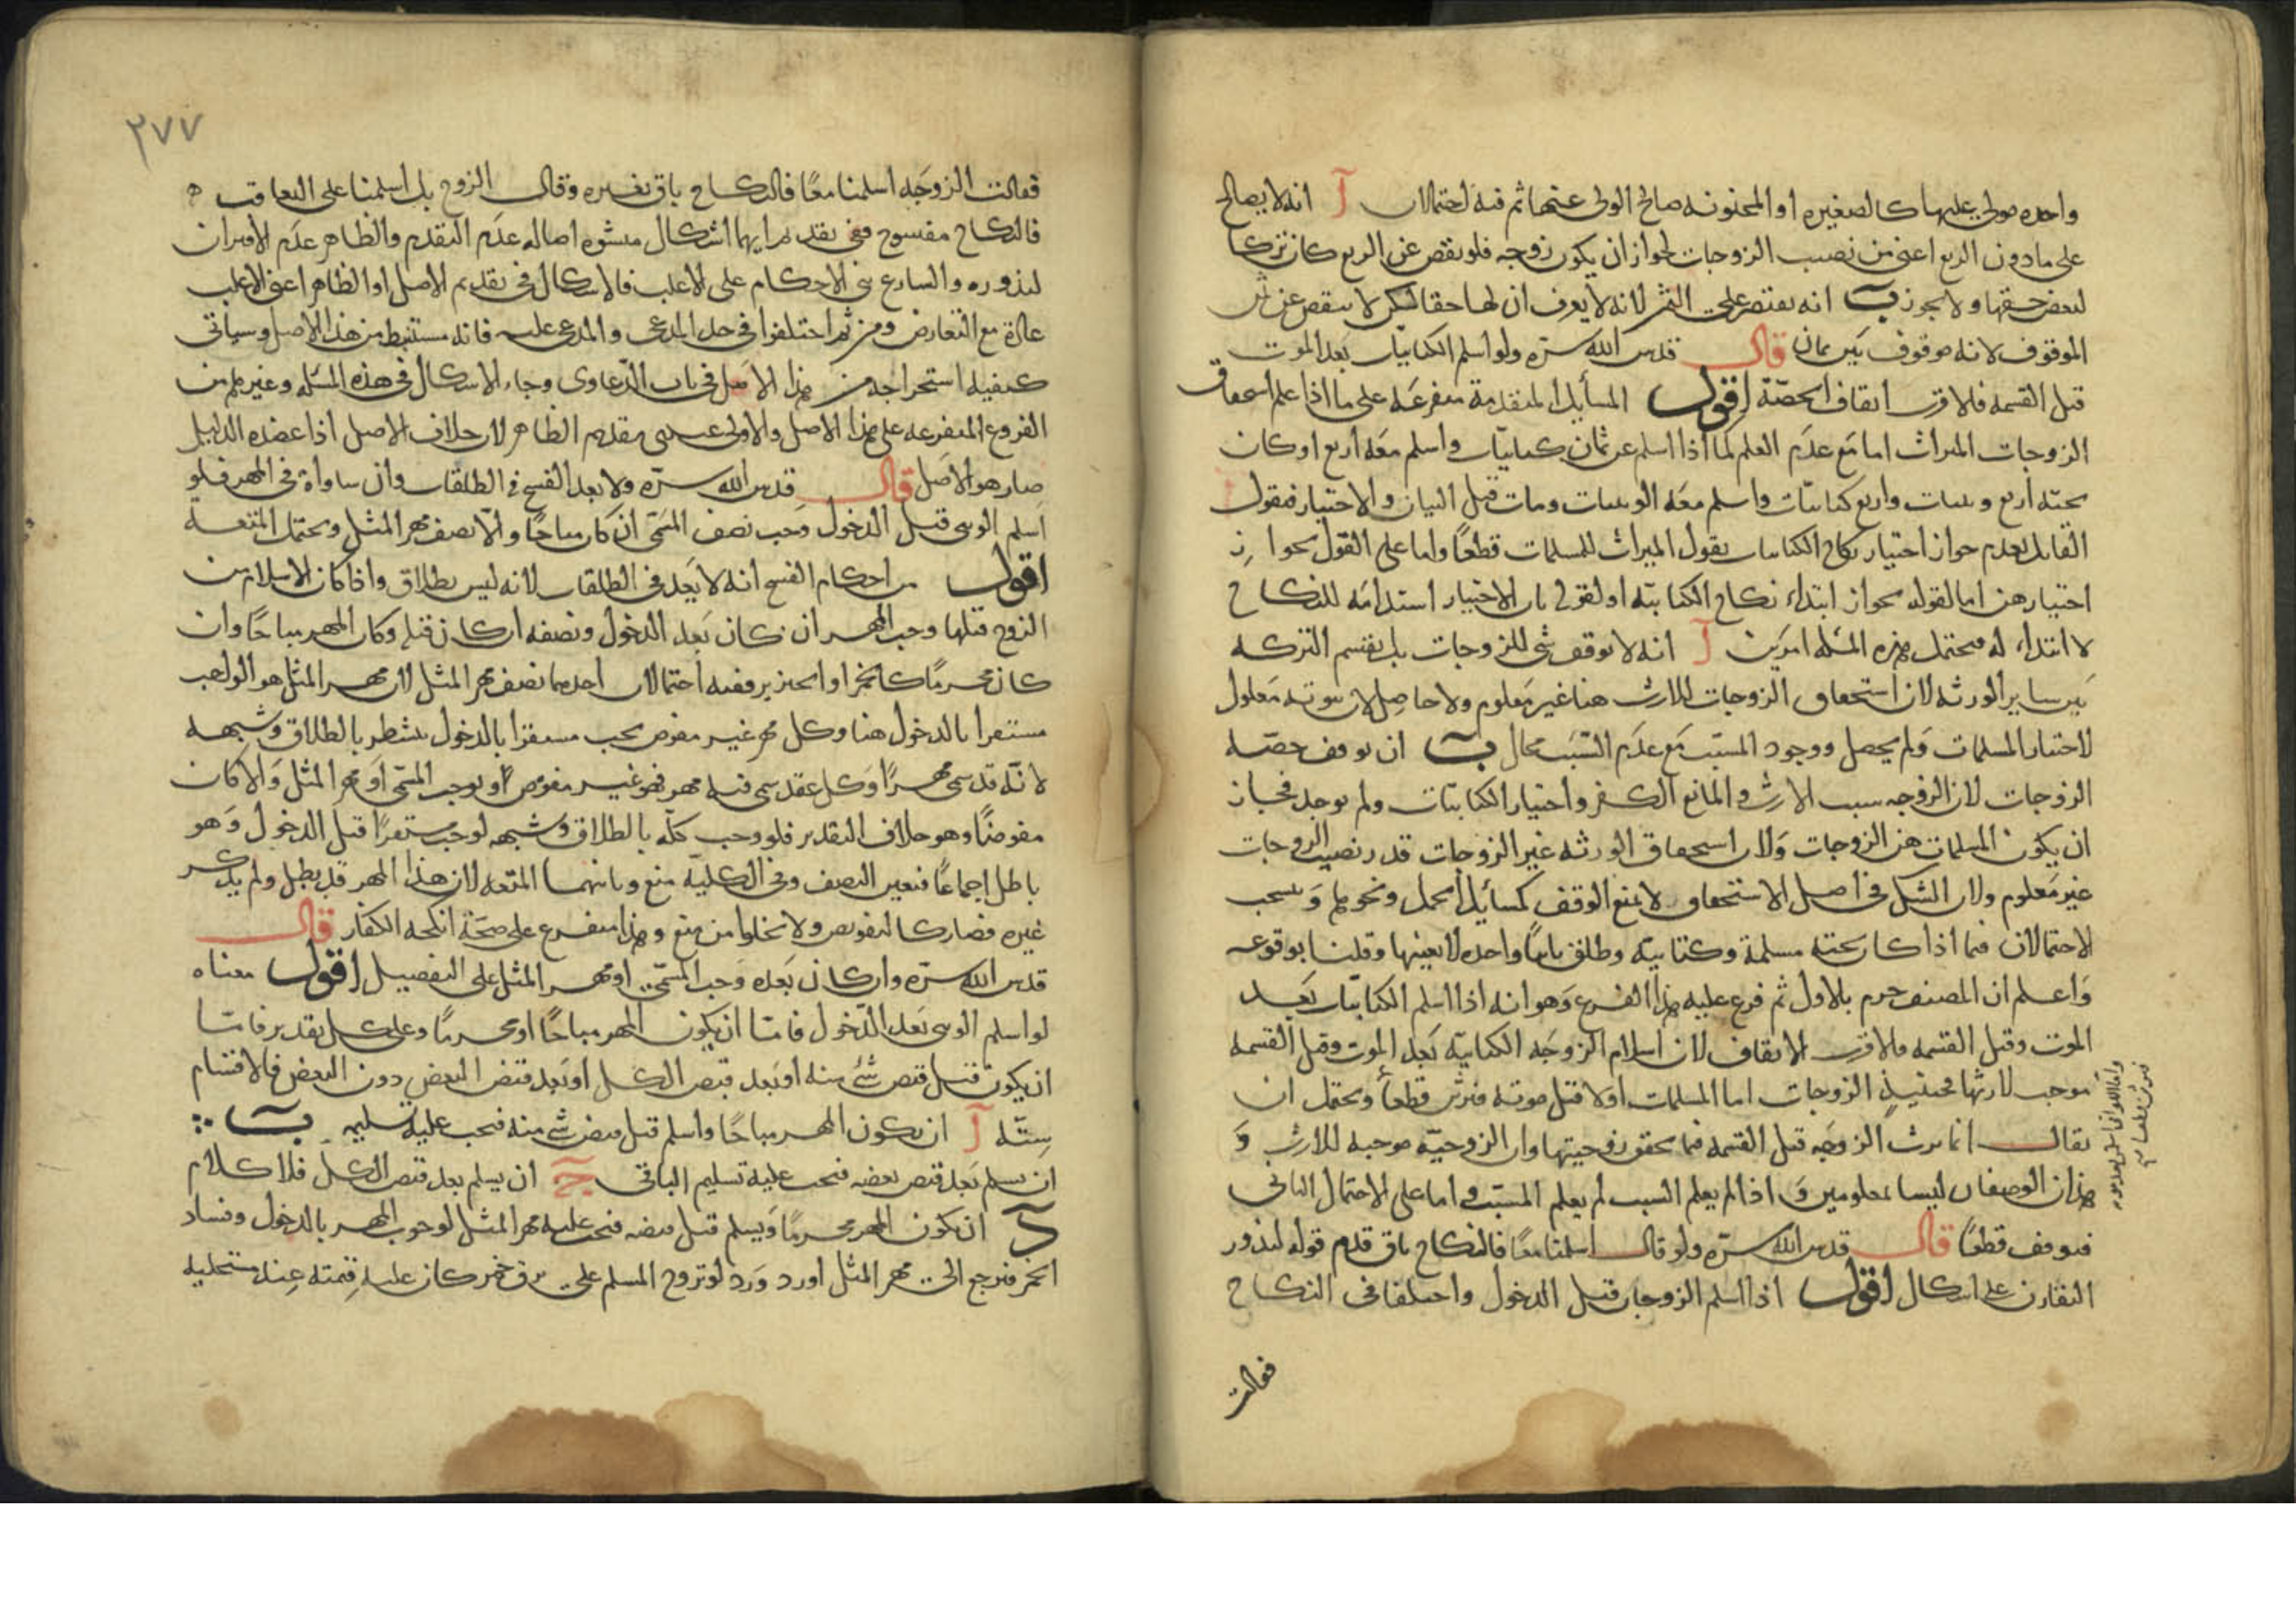 واحده مولى عليها كالصغيره او المجنونه صالح الولى عنها ثم فيه احتمالان آ انه لا يصالح
على ما دون الربع اعنى من نصيب الزوجات لجواز ان يكون زوجه فلو نقص عن الربع كان تركا
لبعض حقها ولا يجوز ب انه يقتصر على الثمن لانه لا يعرف ان لها حقا لكن لا ينقص عن ثمن
الموقوف لانه موقوف بين ثمان قال قدس الله سره ولو اسلم الكتابيات بعد الموت
قبل القسمه فالاقرب ايقاف الحصّة اقول المسائل المتقدمة متفرعَه على ما اذا علم استحقاق
الزوجات الميراث اما مَع عدَم العلم كما اذا اسلم عن ثمان كتابيّات واسلم معَه اربع او كان
تحته اربع وثنيات واربع كتابيّات واسلم معَه الوثنيات ومات قبل البيان والاختيار فنقول
القايل بعدم جواز اختيار نكاح الكتابيات يقول الميراث للمسلمات قطعًا واما على القول بجواز
اختيارهن اما لقوله بجواز ابتداء نكاح الكتابيّه او لقوله بان الاختيار استدامَه للنكاح
لا ابتداء له فيحتمل هذه المسئله امرَين آ انه لا يوقف شى للزوجات بل يقتسم التركه
بَين ساير الورثه لان استحقاق الزوجات للارث هنا غير مَعلوم ولا حاصِل لان ثبوته مَعلول
لاختيار المسلمات وَلم يحصل ووجود المسبّب مَع عدَم السّبَب محال ب ان يوقف حصّه
الزوجات لان الزوجيه سبب الارث والمانع الكفر واختيار الكتابيّات ولم يوجد فجاز
ان يكون المسلمات هن الزوجات وَلان استحقاق الورثه غير الزوجات قدر نصيب الزوجات
غير مَعلوم ولان الشك فى اصل الاستحقاق لا يمنع الوقف كمسائل الحمل ونحوها وَينسحب
الاحتمالان فيما اذا كان تحته مسلمة وكتابيّه وطلق باينًا واحده لا بعينها وقلنا بوقوعه
وَاعلم ان المصنف جزم بالاول ثم فرع عليه هذا الفرع وَهو انه اذا اسلم الكتابيّات بَعد
الموت وقبل القسمه فالاقرب الايقاف لان اسلام الزوجَه الكتابيّه بَعد الموت وقبل القسمه
موجب لارثها فحينيذٍ الزوجات اما المسلمات اولا قبل موته فيرثن قطعًا ويحتمل ان
يقال انما يرث الزوجَه قبل القسمه فيما تحقق زوجيتها وان الزوجيّه موجبه للارث وَ
هذان الوصفان ليسا بمعلومين وَاذا لم يعلم السبب لم يعلم المسبّب واما على الاحتمال الثانى
فيوقف قطعًا قال قدس الله سرّه ولو قال اسلمنا معًا فالنكاح باق قدم قوله لندور
التقارن على اشكال اقول اذا اسلم الزوجان قبل الدخول واختلفا فى النكاح
فقالت
٢٧٧
فقالت الزوجَه اسلمنا معًا فالنكاح باق بغيره وقال الزوج بل اسلمنا على التعاقب
فالنكاح مفسوخ ففى تقديم ايهما اشكال منشوه اصاله عدَم التقدم والظاهر عدَم الاقتران
لندوره والشارع بنى الاحكام على الاغلب فالاشكال فى تقديم الاصل او الظاهر اعنى الاغلب
عادة مع التعارض ومن ثم اختلفوا فى حد المدعى والمدعى عليه فانه مستنبط من هذا الاصل وسياتى
كيفيه استخراجه من هذا الاصل فى باب الدّعاوى وجاء الاشكال فى هذه المسئله وغيرها من
الفروع المتفرعه على هذا الاصل والاولى عندى تقديم الظاهر لان خلاف الاصل اذا عضده الدليل
صار هو الاصَل قال قدس الله سرّه ولا يعد الفسخ فى الطلقات وان ساواه فى المهر فلو
اسلم الوثنى قبل الدخول وَجب نصف المسَمّى ان كان مباحًا والّا نصف مهر المثل ويحتمل المتعه
اقول من احكام الفسخ انه لا يَعد فى الطلقات لانه ليس بطلاق واذا كان الاسلام من
الزوج قبلها وجب المهر ان كان بَعد الدخول ونصفه ان كان قبله وكان المهر مباحًا وان
كان محرمًا كالخمر او الخنزير ففيه احتمالان احدهما نصف مهر المثل لان مهر المثل هو الواجب
مستقرا بالدخول هنا وكل مهر غير مفوض يجب مستقرا بالدخول ينشطر بالطلاق وَشبهه
لانّه قد سمى مهرًا وَكل عقد سمى فيه مهر فهو غير مفوض او يوجب المسَمّى اوَ مهر المثل وَالا كان
مفوضًا وهو خلاف التقدير فلو وجب كلّه بالطلاق وَشبهه لوجب مستقرًا قبل الدخول وَهو
باطل اجماعًا فتعين النصف وفى الكليّة منع وثانيهما المتعه لان هذا المهر قد بطل ولم يذكر
غيره فصار كالتفويض ولا يخلوا من منع وهذا متفرع على صحّة انكحه الكفار قال
قدس الله سرّه وان كان بَعده وَجب المسَمّى او مهر المثل على التفصيل اقول معناه
لو اسلم الوثنى بَعد الدّخول فامّا ان يكون المهر مباحًا او محرمًا وعلى كل تقدير فامّا
ان يكون قبل قبض شئ منه اوَ بعد قبض الكل او بَعد قبض البعض دون البعض فالاقسام
سِتّه آ ان يكون المهر مباحًا واسلم قبل قبض شئ منه فيجب عليه تسليمه ب
ان يسلم بَعد قبض بعضه فيجب عليه تسليم الباقى ج ان يسلم بعد قبض الكل فلا كلام
د ان يكون المهر محرمًا وَيسلم قبل قبضه فيجب عليه مهر المثل لوجوب المهر بالدخول وفساد
الخمر فيرجع الى مهر المثل اورد وَرد لو تزوج المسلم على زق خمر كان عليه قيمته عِند مستحليه